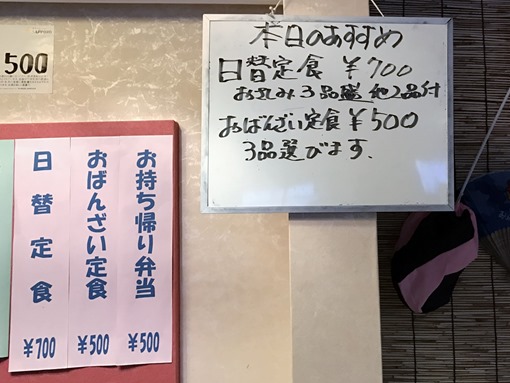 本日のおすすめ
日替定食 ¥700
お好み3品盛 他2品付
おばんざい定食¥500
3品選びます、
500
お持ち帰り弁当
¥500
おばんざい定食
¥500
日替定食
¥700